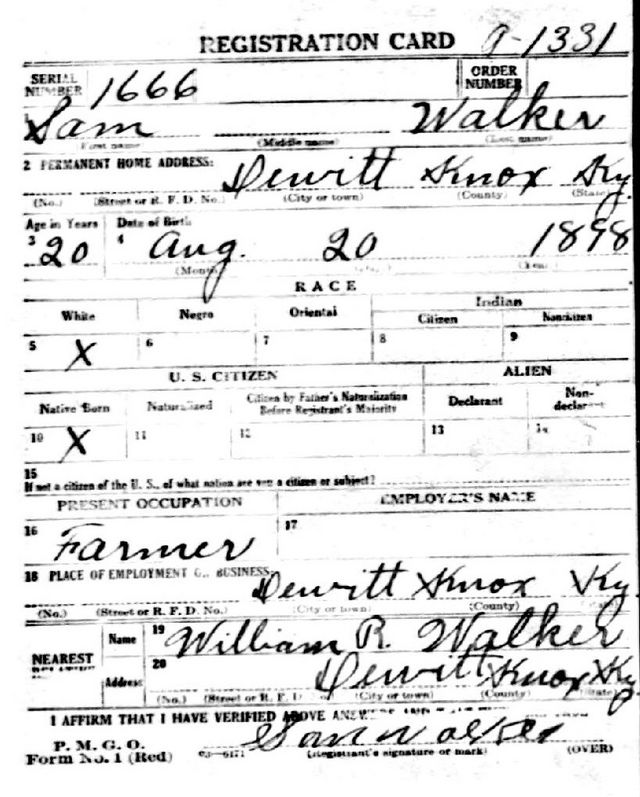 REGISTRATION CARD 9-1331
SERIAL NUMBER 1666 ORDER NUMBER
Sam Walker
First name (Middle name) (Last name)
2 PERMANENT HOME ADDRESS: Dewitt Knox Ky.
(No.) (Street or R. F. D. No.) (City or town) (County) (State)
Age in Years Date of Birth
3 20 4 Aug. 20 1898
(Month)
RACE
White Negro Oriental Indian
Citizen Noncitizen
5 X 6 7 8 9
U. S. CITIZEN ALIEN
Native Born Naturalized Citizen by Father's Naturalization Before Registrant's Majority Declarant Non-declarant
10 X 11 12 13 14
15
If not a citizen of the U. S., of what nation are you a citizen or subject?
PRESENT OCCUPATION EMPLOYER'S NAME
16 Farmer 17
18 PLACE OF EMPLOYMENT BUSINESS: Dewitt Knox Ky
(No.) (Street or R. F. D. No.) (City or town) (County) (State)
NEAREST Name 19 William R. Walker
Address 20 Dewitt Knox Ky
(No.) (Street or R. F. D. (City or town) (County) (State)
I AFFIRM THAT I HAVE VERIFIED ABOVE
P. M. G. O. Sam Walker
Form No. 1 (Red) 03-6171 (Registrant's signature or mark) (OVER)